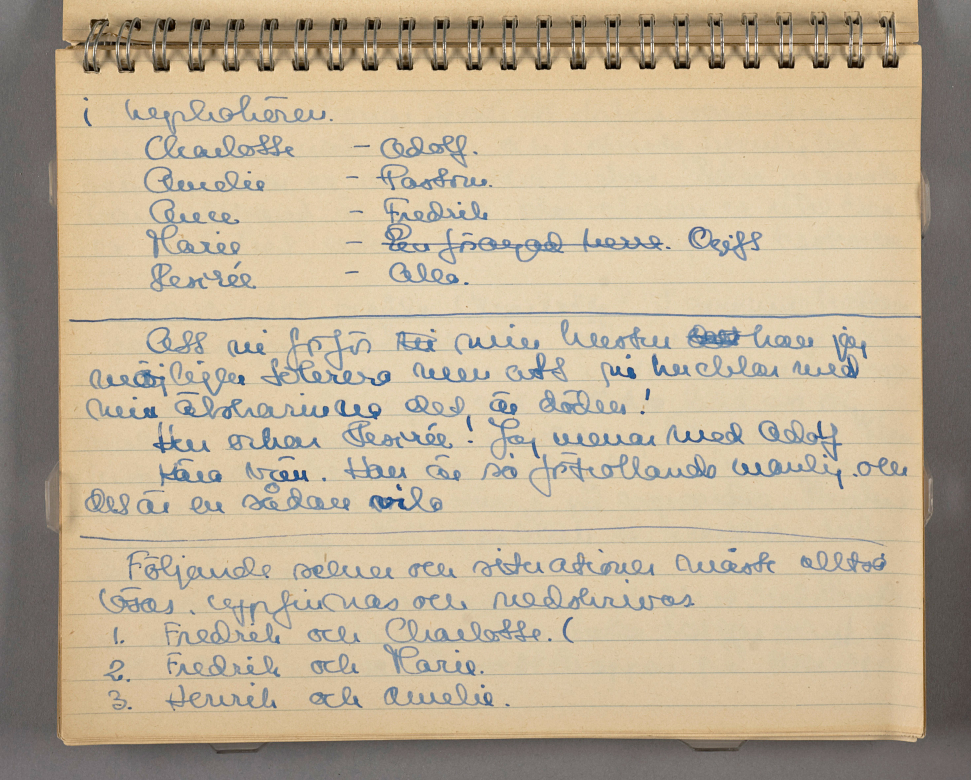 i
Charlotte - Adolf.
Amelie - Pastorn.
Anne - Fredrik
Marie - En försagad herre.
Desirée - Alla.
Att ni förför min hustru kan jag
möjligen tolerera men att ni kucklar med
min älskarinna det är döden!
Hur orkar Desirée! Jag menar med Adolf
Kära vän. Han är så förtrollande manlig. och
det är en sådan vila
Följande scener och situationer måste alltså
lösas. uppfinnas och nedskrivas
1. Fredrik och Charlotte. (
2. Fredrik och Marie.
3. Henrik och Amelie.